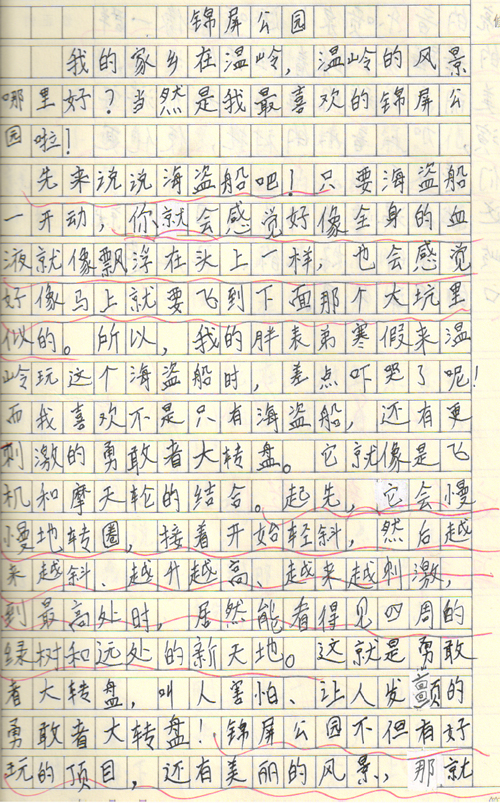 锦屏公园
我的家乡在温岭，温岭的风景
哪里好？当然是我最喜欢的锦屏公
园啦！
先来说说海盗船吧！只要海盗船
一开动，你就会感觉好像全身的血
液就像飘浮在头上一样，也会感觉
好像马上就要飞到下面那个大坑里
似的。所以，我的胖表弟寒假来温
岭玩这个海盗船时，差点吓哭了呢！
而我喜欢不是只有海盗船，还有更
刺激的勇敢者大转盘。它就像是飞
机和摩天轮的结合。起先，它会慢
慢地转圈，接着开始轻斜，然后越
来越斜、越升越高、越来越刺激，
到最高处时，居然能看得见四周的
绿树和远处的新天地。这就是勇敢
者大转盘，叫人害怕、让人发颤的
勇敢者大转盘！锦屏公园不但有好
玩的项目，还有美丽的风景，那就